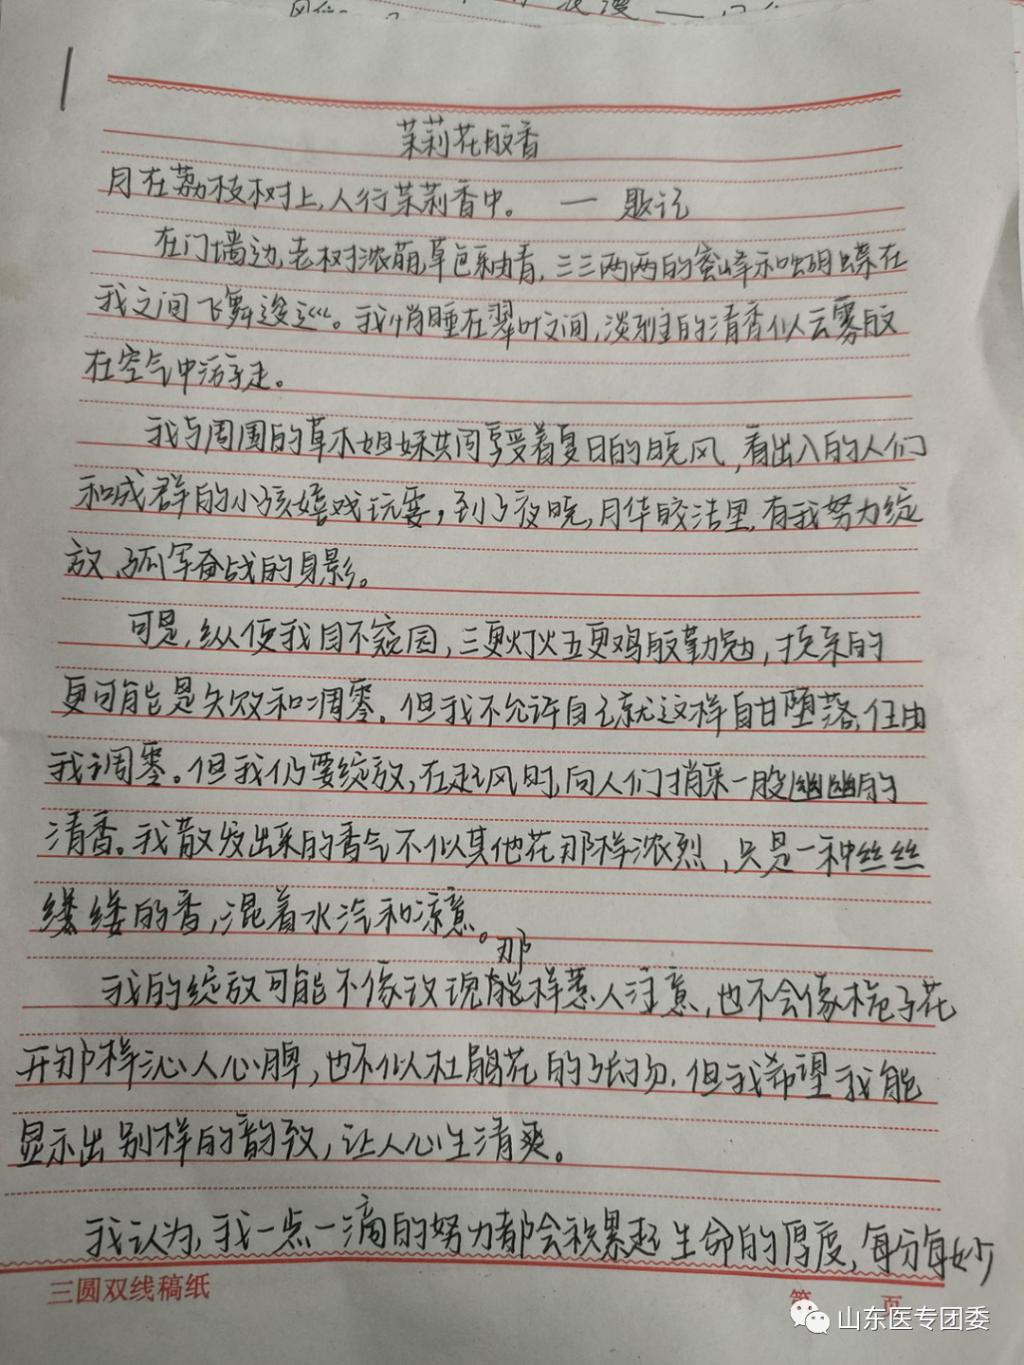 1
茉莉花般香
月在荔枝树上,人行茉莉香中。 — 题记
在门墙边,老树浓荫,草色釉青,三三两两的蜜蜂和蝴蝶在
我之间飞舞逡巡。我悄睡在翠叶之间,淡雅的清香似云雾般
在空气中游走。
我与周围的草木姐妹共同享受着夏日的晚风,看出入的人们
和成群的小孩嬉戏玩耍,到了夜晚,月华皎洁里,有我努力绽
放、孤军奋战的身影。
可是,纵使我目不窥园,三更灯火五更鸡般勤勉,换来的
更可能是失败和凋零。但我不允许自己就这样自甘堕落,任由
我凋零。但我仍要绽放,在起风时,向人们捎来一股幽幽的
清香。我散发出来的香气不似其他花那样浓烈,只是一种丝丝
缕缕的香,混着水汽和凉意。
我的绽放可能不像玫瑰那样惹人注意,也不会像栀子花
开那样沁人心脾,也不似杜鹃花的张扬,但我希望我能
显示出别样的韵致,让人心生清爽。
我认为,我一点一滴的努力都会积累起生命的厚度,每分每妙
三圆双线稿纸
第 页
山东医专团委